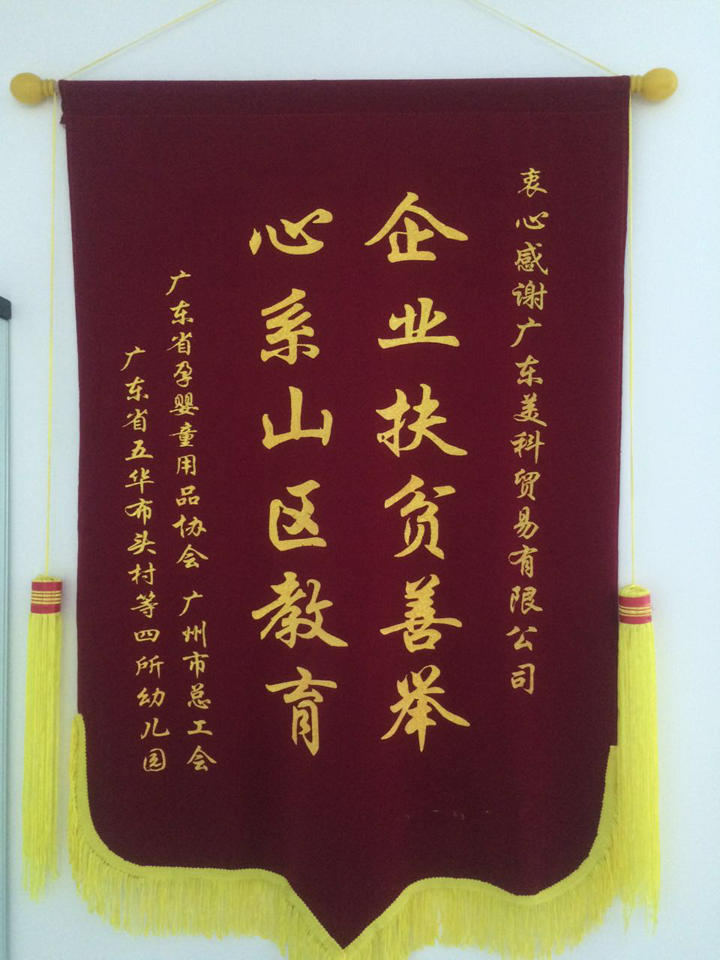 衷心感谢广东美科贸易有限公司
企业扶贫善举
心系山区教育
广东省孕婴童用品协会 广州市总工会
广东省五华布头村等四所幼儿园